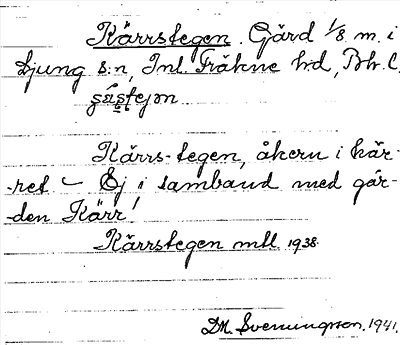 Kärrstegen. Gård 1/8 m. i
Ljung s:n, Inl. Fräkne hd, Bh. l.
Kärrs-tegen, åkern i kär-
-ret. – Ej i samband med går-
-den Kärr!
Kärrstegen mtl 1938.
DM. Svenningson. 1941.